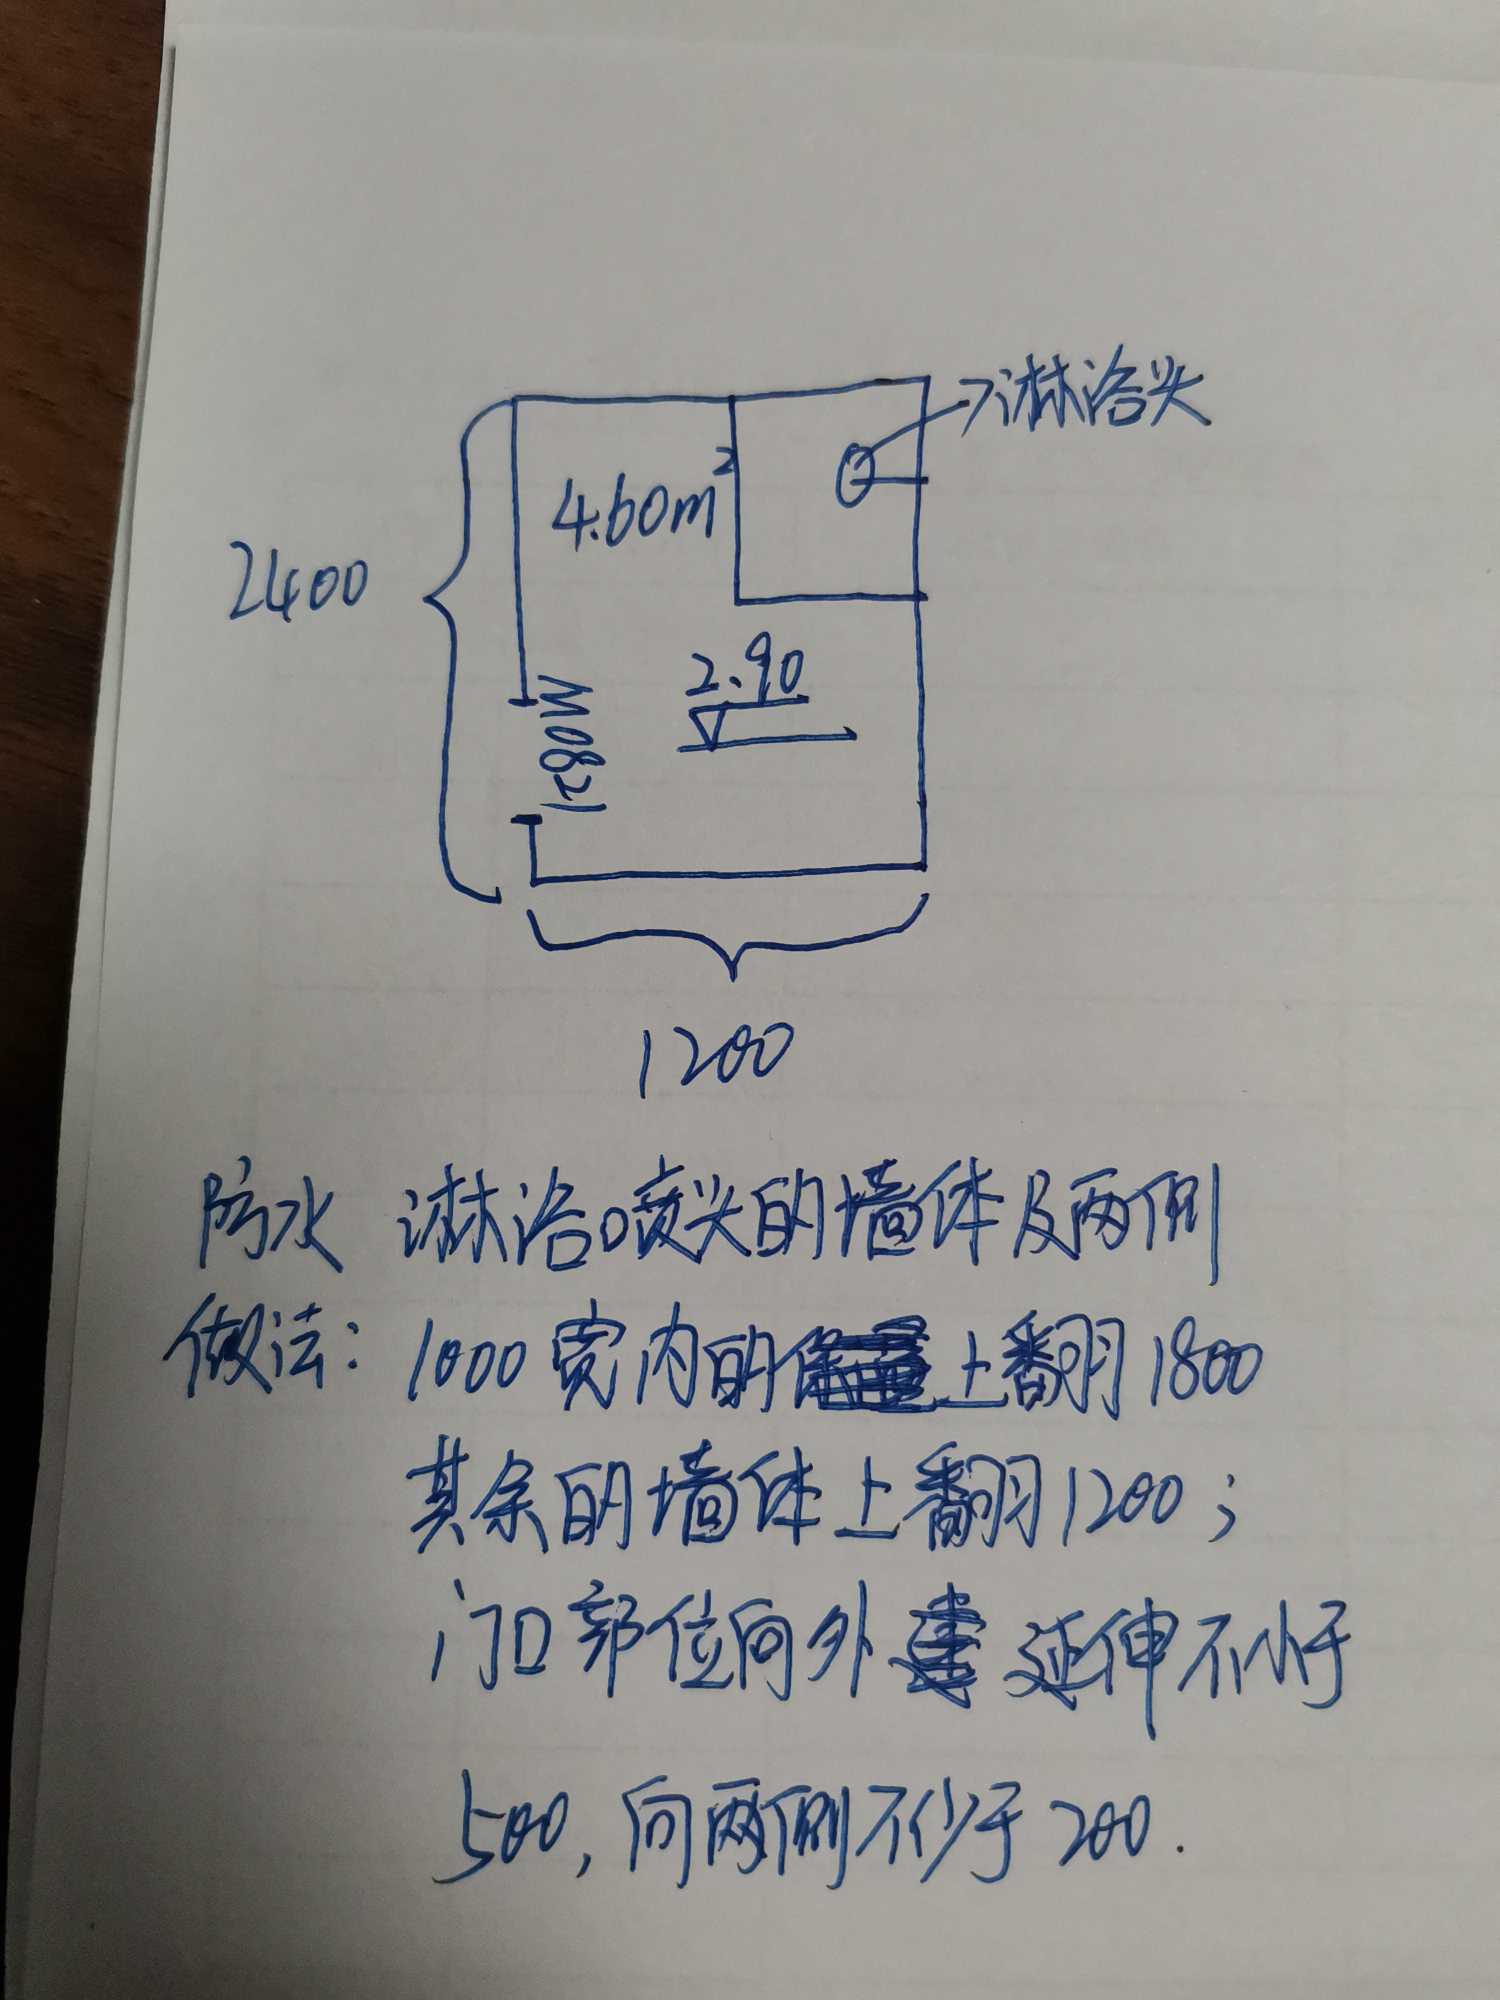 淋浴头
4.60m²
2400
2.90
M0821
1200
防水 淋浴喷头的墙体及两侧
做法：1000宽内的 上翻1800
其余的墙体上翻1200；
门口部位向外 延伸不小于
500，向两侧不少于200.